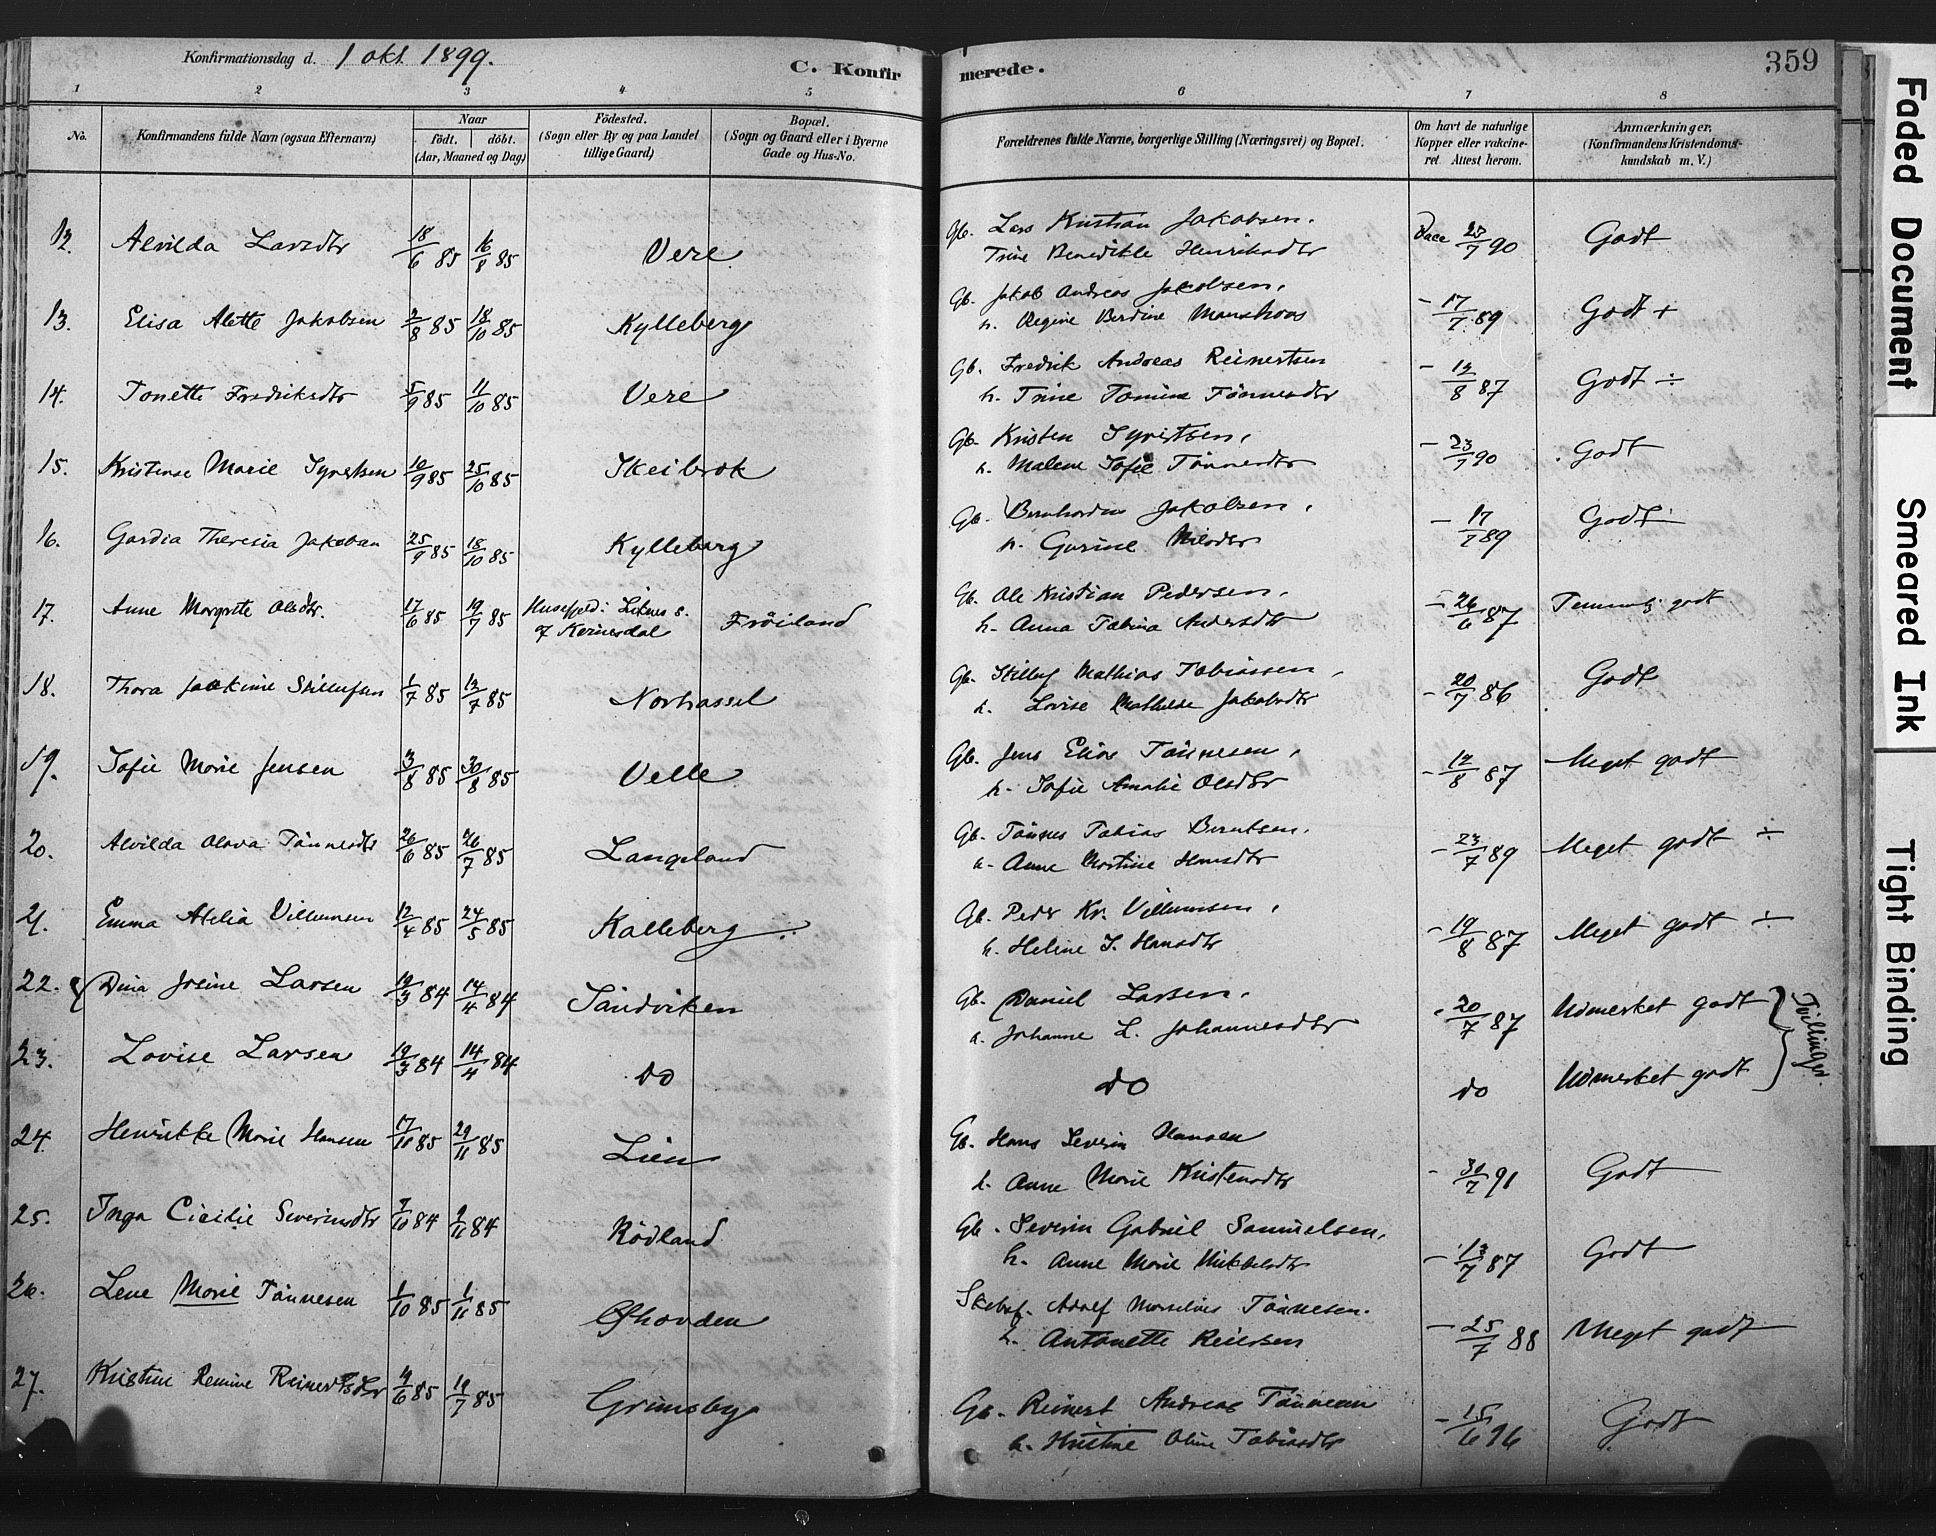 Konfirmationsdag d. 1 okt. 1899.
C. Konfirmerede.
359
1 2 3 4 5 6 7 8
No.
Konfirmandens fulde Navn (ogsaa Efternavn)
Naar
født. døbt.
(Aar, Maaned og Dag)
Fødested.
(Sogn eller By og paa Landet
tillige Gaard)
Bopæl.
(Sogn og Gaard eller i Byerne
Gade og Hus-No.
Forældrenes fulde Navne, borgerlige Stilling (Næringsvei) og Bopæl.
Om havt de naturlige
Kopper eller vakcine-
ret. Attest herom.
Anmærkninger.
(Konfirmandens Kristendoms-
kundskab m. V.)
12. Alvilda Larsdtr 18/6 85 16/8 85 Vere Gb. Lars Kristian Jakobsen. Vacc 23/7 90 Godt
Trine Benedikte Henriksdtr
13. Elisa Alette Jakobsen 2/8 85 18/10 85 Kylleberg Gb. Jakob Andreas Jakobsen, - 17/7 89 Godt +
h. Regine Berdine
14. Tonette Fredriksdtr 5/9 85 11/10 85 Vere Gb. Fredrik Andreas Reinertsen - 12/8 87 Godt ÷
h. Trine Tomine Tönnesdtr
15. Kristense Marie Syvertsen 10/9 85 25/10 85 Skeibrok Gb. Kristen Syvertsen, - 23/7 90 Godt
h. Malene Sofie Tönnesdtr
16. Gardia Theresia Jakobsen 25/9 85 18/10 85 Kylleberg Gb. Bernhardin Jakobsen, - 17/7 89 Godt
h. Gurine Nilsdtr
17. Anne Margrete Olsdtr. 17/6 85 19/7 85 Husefjeld i s. Fröiland Gb. Ole Kristian Pedersen, - 26/6 87 Temmelig godt
af h. Anna Tabina Andersdtr
18. Thora Joakime Skillufsen 1/7 85 12/7 85 Norhassel Gb. Skilluf Mathias Tobiassen, - 20/7 86 Godt
h. Lovise Mathilde Jakobsdtr
19. Sofie Marie Jensen 3/8 85 30/8 85 Velle Gb. Jens Elias Tönnesen, - 12/8 87 Meget godt
h. Sofie Amalie Olsdtr
20. Alvilda Olava Tönnesdtr 26/6 85 26/7 85 Langeland Gb. Tönnes Tobias Berntsen. - 23/7 89 Meget godt ÷
h. Anne Martine Hansdtr
21. Emma Atelia Villumsen 12/4 85 24/5 85 Kalleberg Gb. Peder Kr. Villumsen, - 19/8 87 Meget godt ÷
h. Heline S. Hansdtr
22. Dina Josine Larsen 19/3 84 14/4 84 Sandviken Gb. Daniel Larsen, - 20/7 87 Udmerket godt
h. Johanne L. Johannesdtr
Tvillinger.
23. Lovise Larsen 19/3 84 14/4 84 do do do Udmerket godt
24. Henrikke Marie Hansen 17/10 85 29/11 85 Lien Gb. Hans Severin Hansen - 30/7 91 Godt
h. Anne Marie Kristensdtr
25. Inga Cicilie Severinsdtr 7/10 84 2/11 84 Rödland Gb. Severin Gabriel Samuelsen, - 13/7 87 Godt
h. Anne Marie Mikkelsdtr
26. Lene Marie Tönnesen 1/10 85 1/11 85 Öfhovden Adolf Marselius Tönnesen. - 25/7 88 Meget godt
h. Antonette Reiersen
27. Kristine Remine Reinertsdtr 4/6 85 19/7 85 Grimsby Gb. Reinert Andreas Tönnesen - 15/6 96 Godt
h. Kristine Oline Tobiasdtr
Faded Document
Smeared Ink
Tight Binding